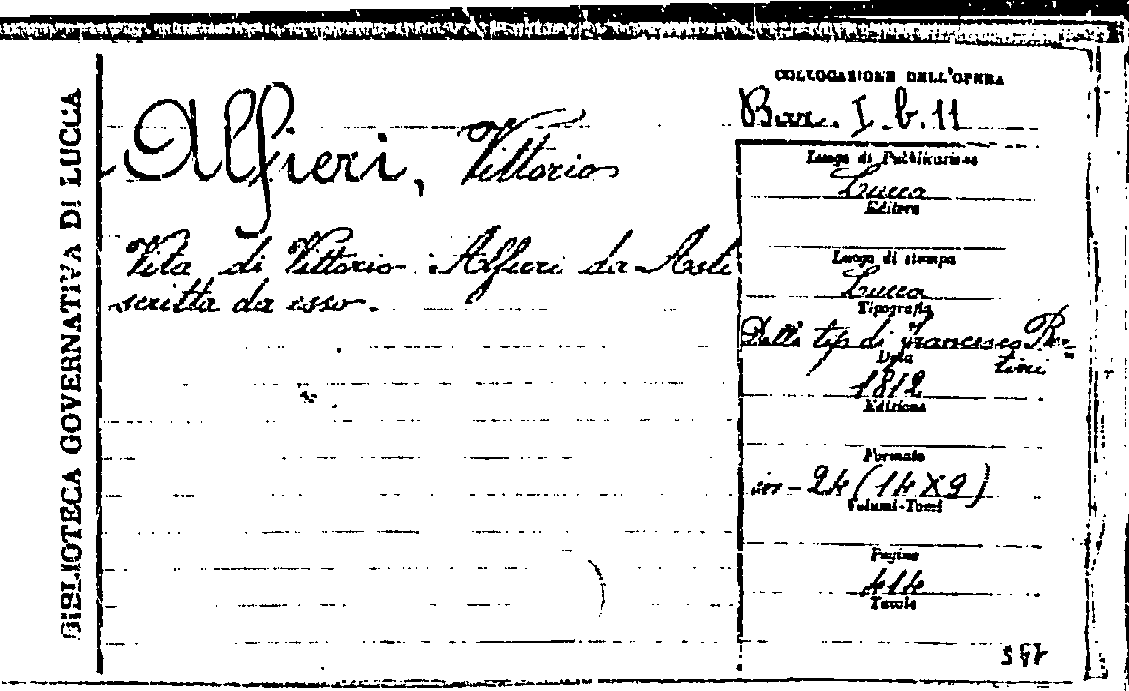 BIBLIOTECA GOVERNATIVA DI LUCCA
Alfieri, Vittorio
Vita di Vittorio Alfieri da Asti
scritta da esso.
COLLOCAZIONE DELL'OPERA
Bar. I. b. 11
Luogo di Pubblicazione
Lucca
Editore
Luogo di stampa
Lucca
Tipografia
Dalla tip. di Francesco Ber=
tini
Data
1812
Edizione
Formato
in-24 (14X9)
Volumi-Tomi
Pagine
414
Tavole